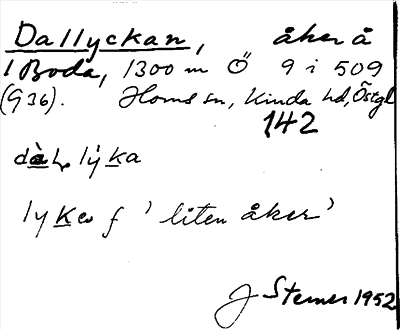 Dallyckan, åker å
1 Boda, 1300 m Ö 9 i 509
(G 36). Horns sn, Kinda hd, Östgl
142
dàl, lýka
lyken f 'liten åker'
J Sterner 1952